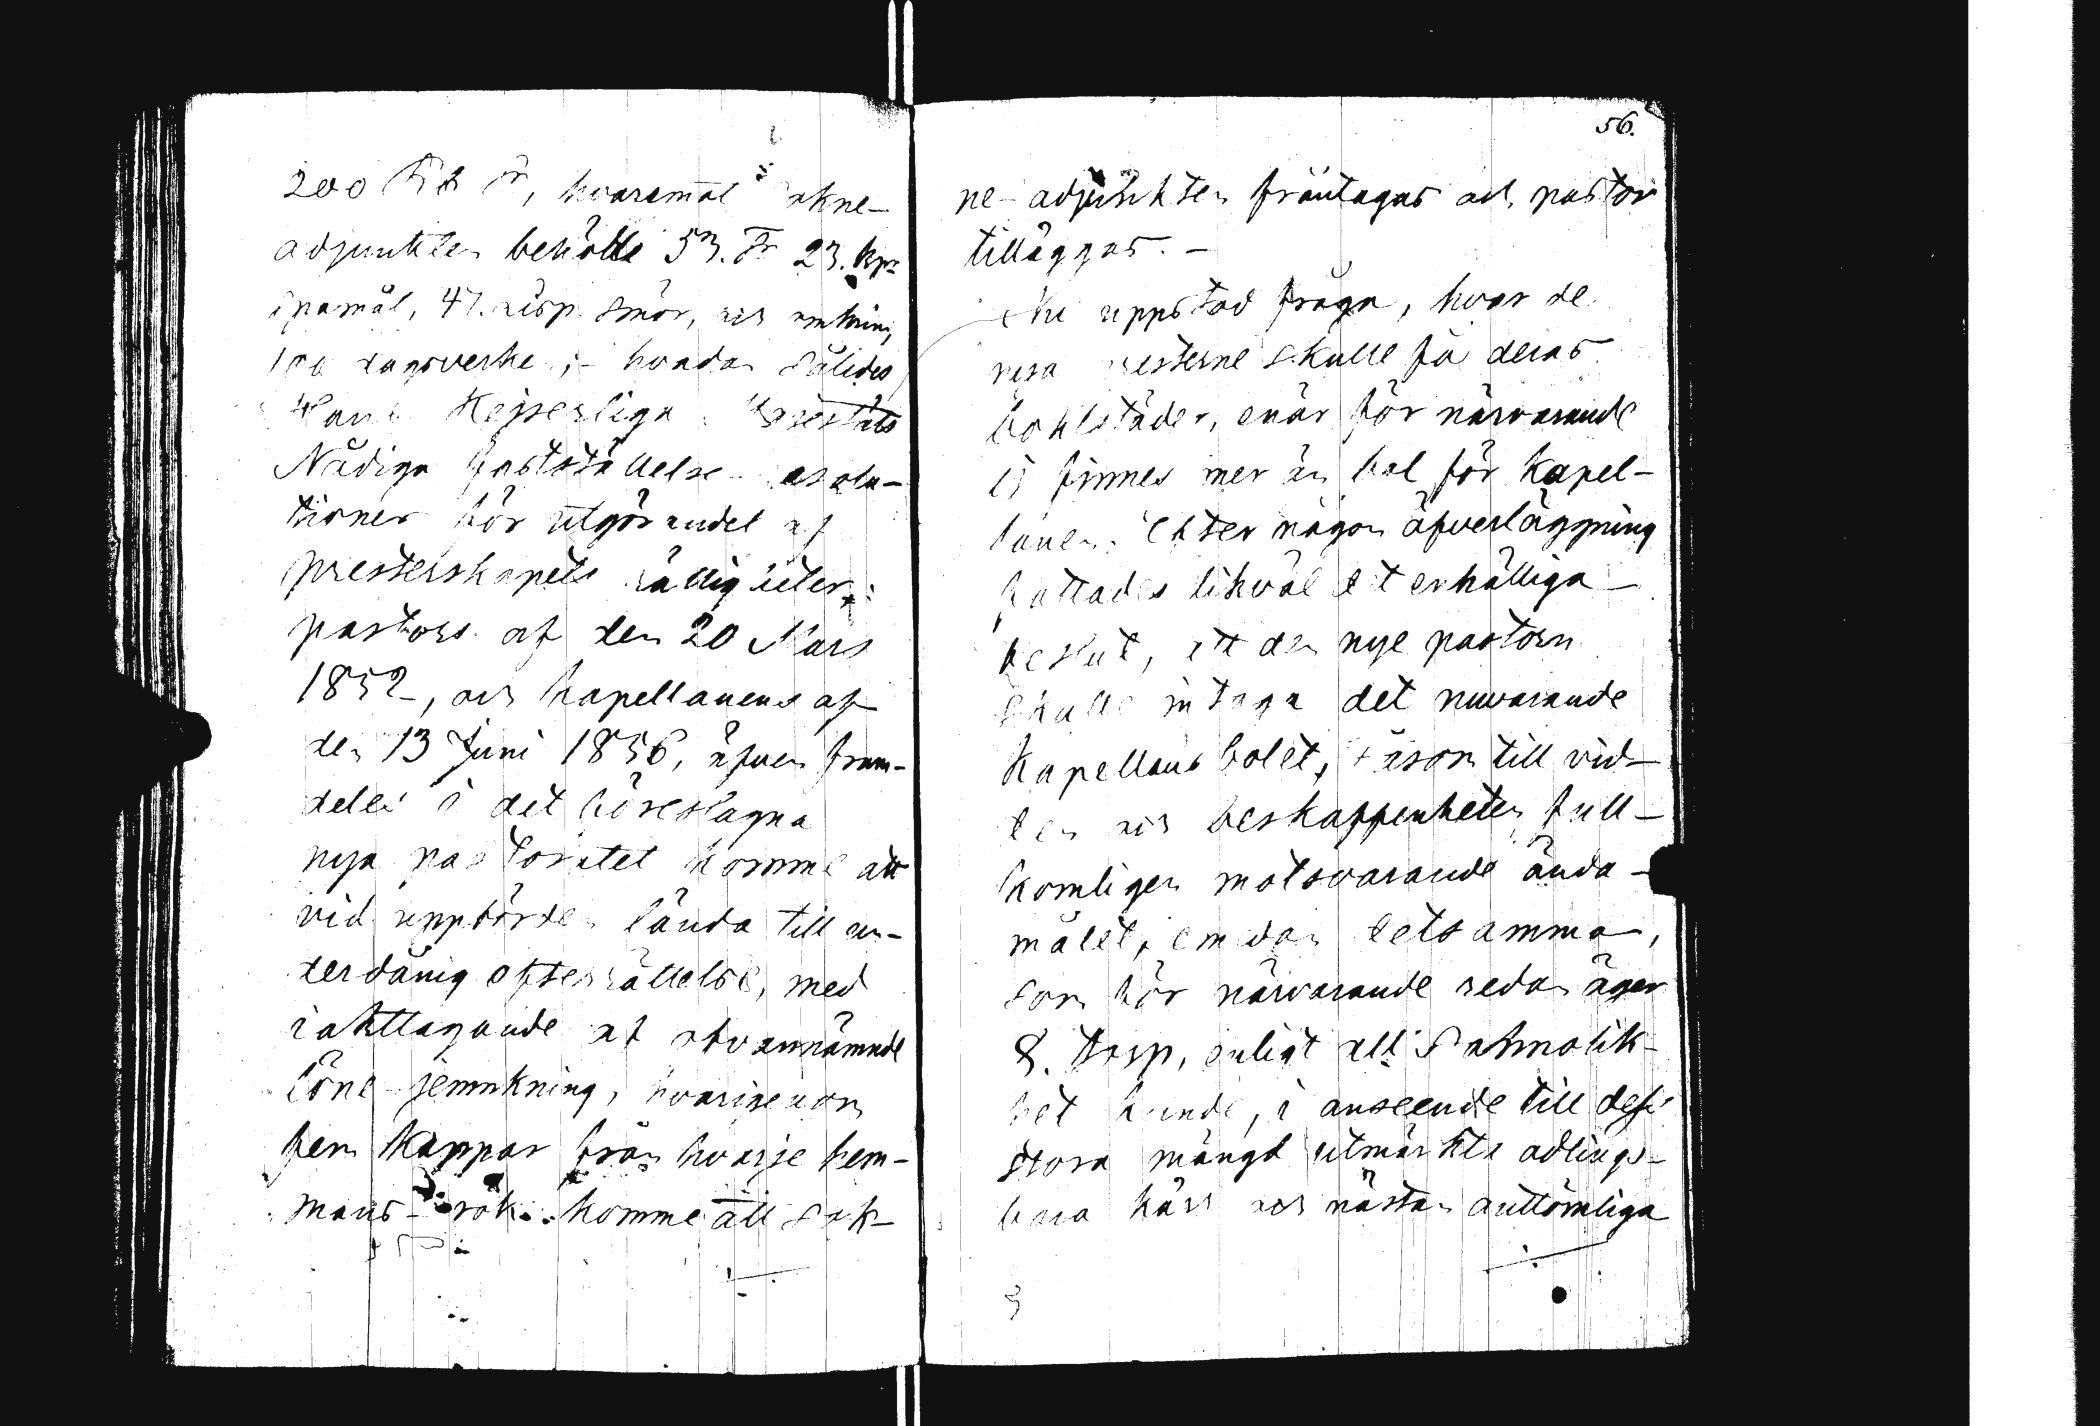 200 hvaremot
adjunkten behölle 53. Tr 23. kpr
spanmål, 47. Lisp smör, och omkring
100 dagsverken; hvadan således
Hans Kejserliga Majestäts
Nådiga fastställelse resolu-
tioner för utgörandet af
presterskapets rättigheter:
pastors af den 20 Mars
1852, och kapellanens af
den 13 Juni 1856, äfven fram-
deles i det föreslagna
nya pastoratet komme att
vid uppbörden lända till un-
derdånig efterrättelse, med
iakttagande af ofvannämnde
löne-jemnkning, hvarigenom
fem kappar från hvarje hem-
mans-rök komme att sok-
56.
ne-adjunkten fråntagas och pastor
tilläggas. -
Nu uppstod fråga, hvar de
nya presterne skulle få deras
bohlstäder, enär för närvarande
ej finnes mer än bol för kapel-
lanen. Efter någon öfverläggning
fattades likväl ett enhälliga
beslut, att den nye pastorn
skulle intaga det nuvarande
Kapellans bolet, såsom till vid-
den och beskaffenheten full-
komligen motsvarande ända-
målet, emedan detsamma,
som för närvarande redan äger
8. enligt all sannolik-
het kunde, i anseende till dess
stora mängd utmärkta odlings-
bara kärr och nästan outtömliga